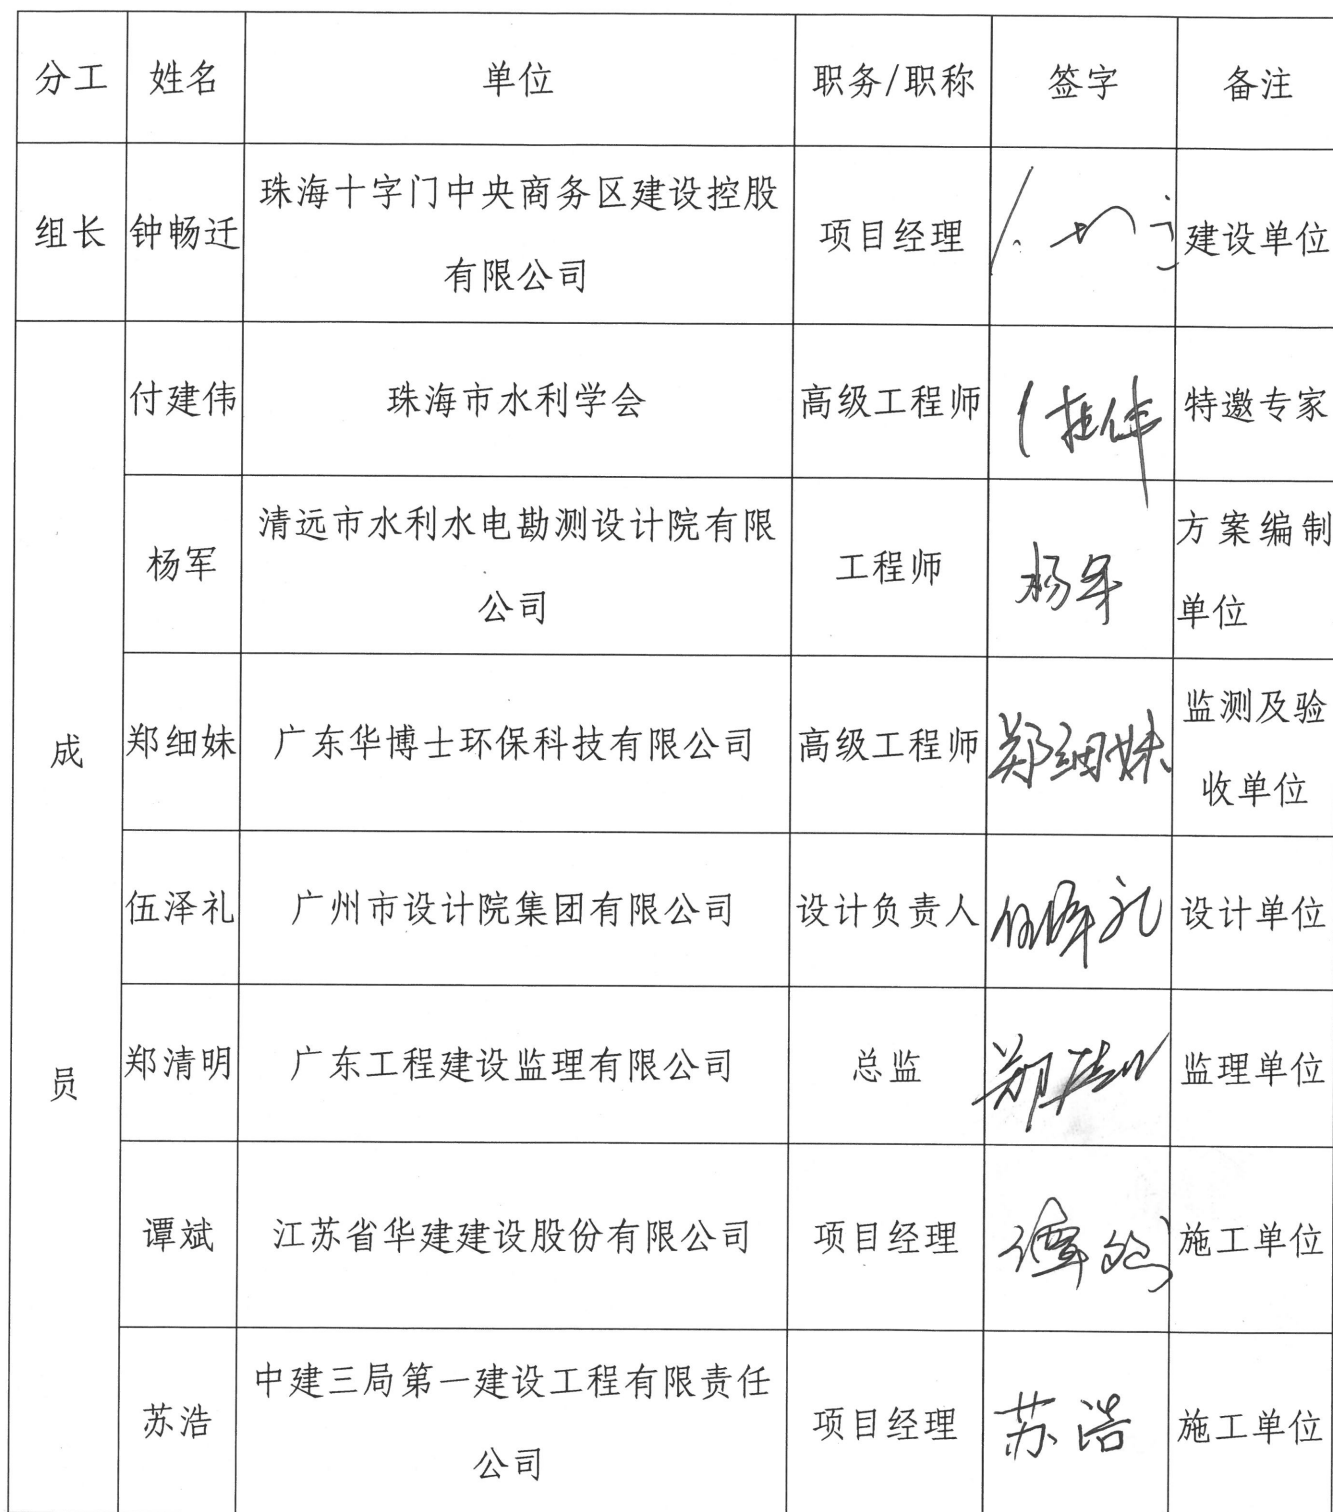 分工 姓名 单位 职务/职称 签字 备注
组长 钟畅迁 珠海十字门中央商务区建设控股 项目经理 建设单位
有限公司
成
员
付建伟 珠海市水利学会 高级工程师 特邀专家
杨军 清远市水利水电勘测设计院有限 工程师 杨军 方案编制
公司 单位
郑细妹 广东华博士环保科技有限公司 高级工程师 郑细妹 监测及验
收单位
伍泽礼 广州市设计院集团有限公司 设计负责人 伍泽礼 设计单位
郑清明 广东工程建设监理有限公司 总监 监理单位
谭斌 江苏省华建建设股份有限公司 项目经理 谭斌 施工单位
苏浩 中建三局第一建设工程有限责任 项目经理 苏浩 施工单位
公司